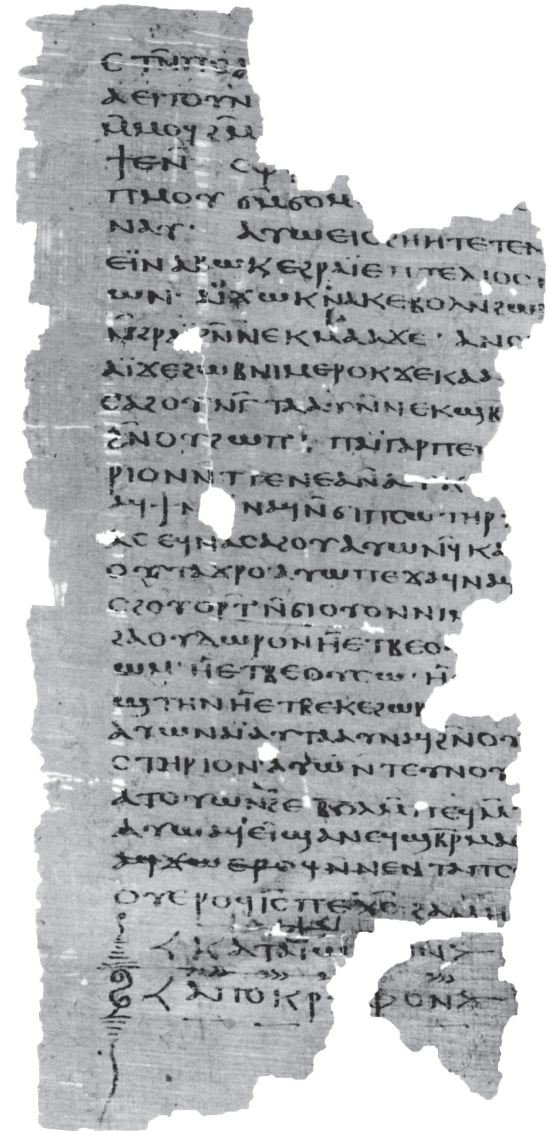 ⲉ ⲧⲙ̄
ⲁⲉⲓⲧⲟⲩⲛ
ⲙ̄ⲙⲟϥ ϩⲙ̄
ϯⲉⲛ ⲥⲫ
ⲡⲙⲟⲩ ϭⲙϭⲟⲙ
ⲛⲁⲩ· ⲁⲩⲱ ⲉⲓⲥϩⲏⲏⲧⲉ ⲧⲉⲛ
ⲉⲓ̈ⲛⲁⲃⲱⲕ ⲉϩⲣⲁⲓ̈ ⲉⲡⲧⲉⲗⲓⲟⲥ
ⲱⲛ· ⲁⲓ̈ϫⲱⲕ ⲛⲁⲕ ⲉⲃⲟⲗ ⲛϩⲱⲃ
ⲛ̄ϩⲣⲁⲓ̈ ϩⲛ ⲛⲉⲕⲙⲁⲁϫⲉ· ⲁⲛⲟ
ⲁⲓ̈ϫⲉ ϩⲱⲃ ⲛⲓⲙ ⲉⲣⲟⲕ ϫⲉⲕⲁⲁ
ⲥⲁϩⲟⲩ ⲛⲅ̄ ⲧⲁⲁⲩ ⲛ̄ⲛⲉⲕϣⲃ
ϩⲛ̄ⲟⲩϩⲱⲡ· ⲡⲁⲓ̈ ⲅⲁⲣ ⲡⲉ
ⲣⲓⲟⲛ ⲛⲧⲅⲉⲛⲉⲁ
ⲁϥϯ ⲛ ⲛⲁϥ ⲛ̄ϭⲓ ⲡⲥⲱⲧⲏⲣ·
ⲁⲥ ⲉϥⲛⲁⲥⲁϩⲟⲩ ⲁⲩⲱ ⲛϥ̄ⲕⲁ
ⲟⲩⲧⲁϫⲣⲟ ⲁⲩⲱ ⲡⲉϫⲁϥ ⲛⲁϥ
ⲥϩⲟⲩⲟⲣⲧ ⲛ̄ϭⲓ ⲟⲩⲟⲛ ⲛⲓⲙ
ϩⲁ ⲟⲩⲇⲱⲣⲟⲛ ⲏ̄ ⲉⲧⲃⲉ ⲟ
ⲱⲙ· ⲏ̄ ⲉⲧⲃⲉ ⲟⲩⲥⲱ· ⲏ̄
ϣⲧⲏⲛ ⲏ̄ ⲉⲧⲃⲉ ⲕⲉϩⲱⲃ
ⲁⲩⲱ ⲛⲁⲓ̈ ⲁⲩⲧⲁⲁⲩ ⲛⲁϥ ϩⲛⲟⲩ
ⲥⲧⲏⲣⲓⲟⲛ ⲁⲩⲱ ⲛⲧⲉⲩⲛⲟⲩ
ⲁⲧⲟⲩⲱⲛϩ̄ ⲉⲃⲟⲗ ⲙ̄ⲡⲉϥⲙ̄
ⲁⲩⲱ ⲁϥⲉⲓ̈ ϣⲁ ⲛⲉϥϣⲃⲣⲙⲁ
ⲁϥϫⲱ ⲉⲣⲟϥ ⲛ̄ⲛⲉⲛⲧⲁⲡⲥ
ⲟⲩ ⲉⲣⲟϥ ⲓ̄ⲥ̄ ⲡⲉⲭ̄ⲥ̄ ϩⲁⲙⲏⲛ
ⲕⲁⲧⲁ ⲓ̈ⲱ ⲏⲛ
ⲁⲡⲟⲕⲣ ⲫⲟⲛ